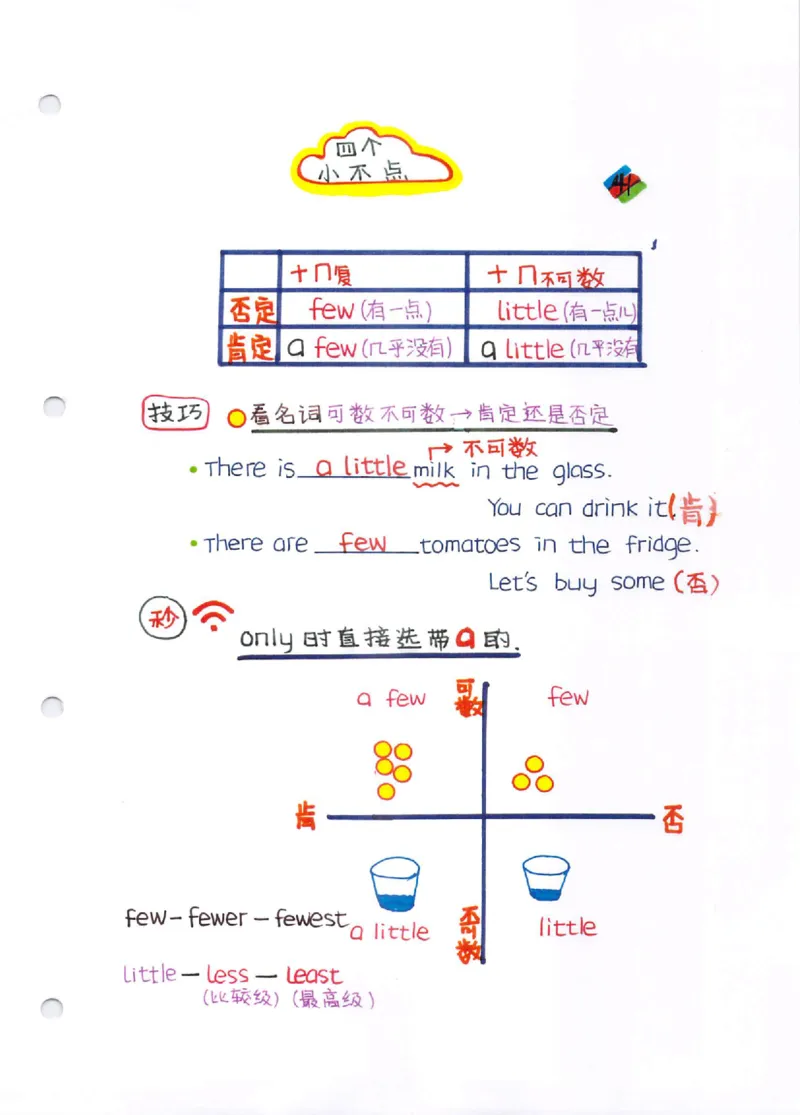 四个
小不点
+冂复 +冂不可数
否定 few(有一点) little(有一点儿)
肯定 a few(几乎没有) a little(几乎没有
技巧 看名词可数不可数→肯定还是否定
不可数
There is a little milk in the glass.
You can drink it(肯)
There are few tomatoes in the fridge.
Let's buy some (否)
秒 only时直接选带a的.
a few 可数 few
肯 否
few-fewer-fewest a little 不可数 little
little-less-least
(比较级)(最高级)